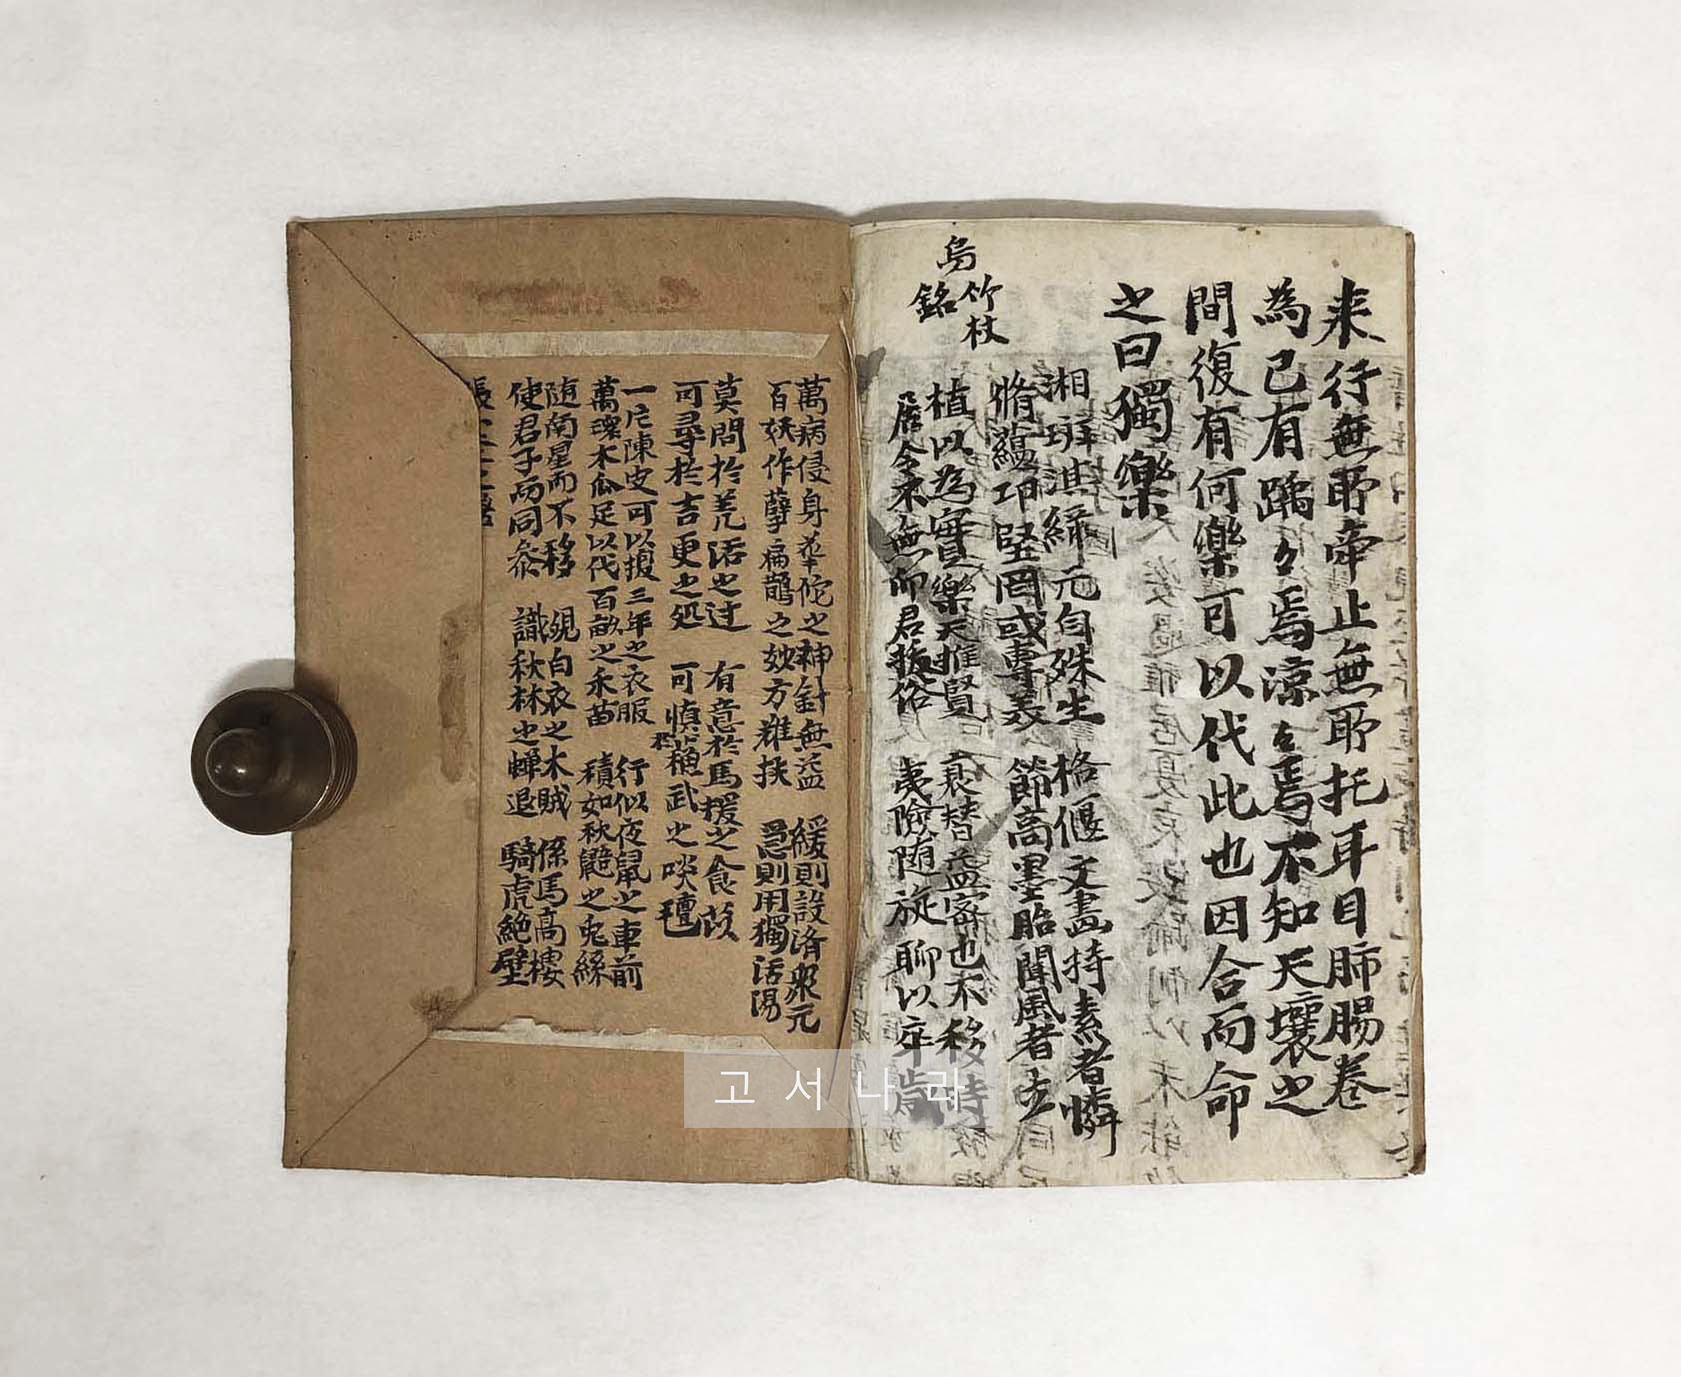 来行無所牽止無所托耳目肺腸卷
為己有踽々焉凉々焉不知天壤之
間復有何樂可以代此也因合而命
之曰獨樂
烏竹杖
銘
湘班淇綠元自殊生 格偃文畫持素者憐
節高墨胎聞風者立
植以為實樂天推賢
居今不無仰君援俗 夷險随放聊以卒歲
萬病侵身華佗之神針無益 緩則設済衆元
百妖作孽扁鵲之妙方難挨 急則用獨活湯
莫問於羌活之过 有意於馬援之食苡
可尋於吉更之処 可慎於武之啖
一片陳皮可以復三年之衣服 行似夜鼠之車前
萬環木瓜足以代百畝之禾苗 積如秋之兎絲
随南星而不移 覡白衣之木賊 係馬高樓
使君子而同叅 識秋林之蟬退 騎虎絶壁
고서나라